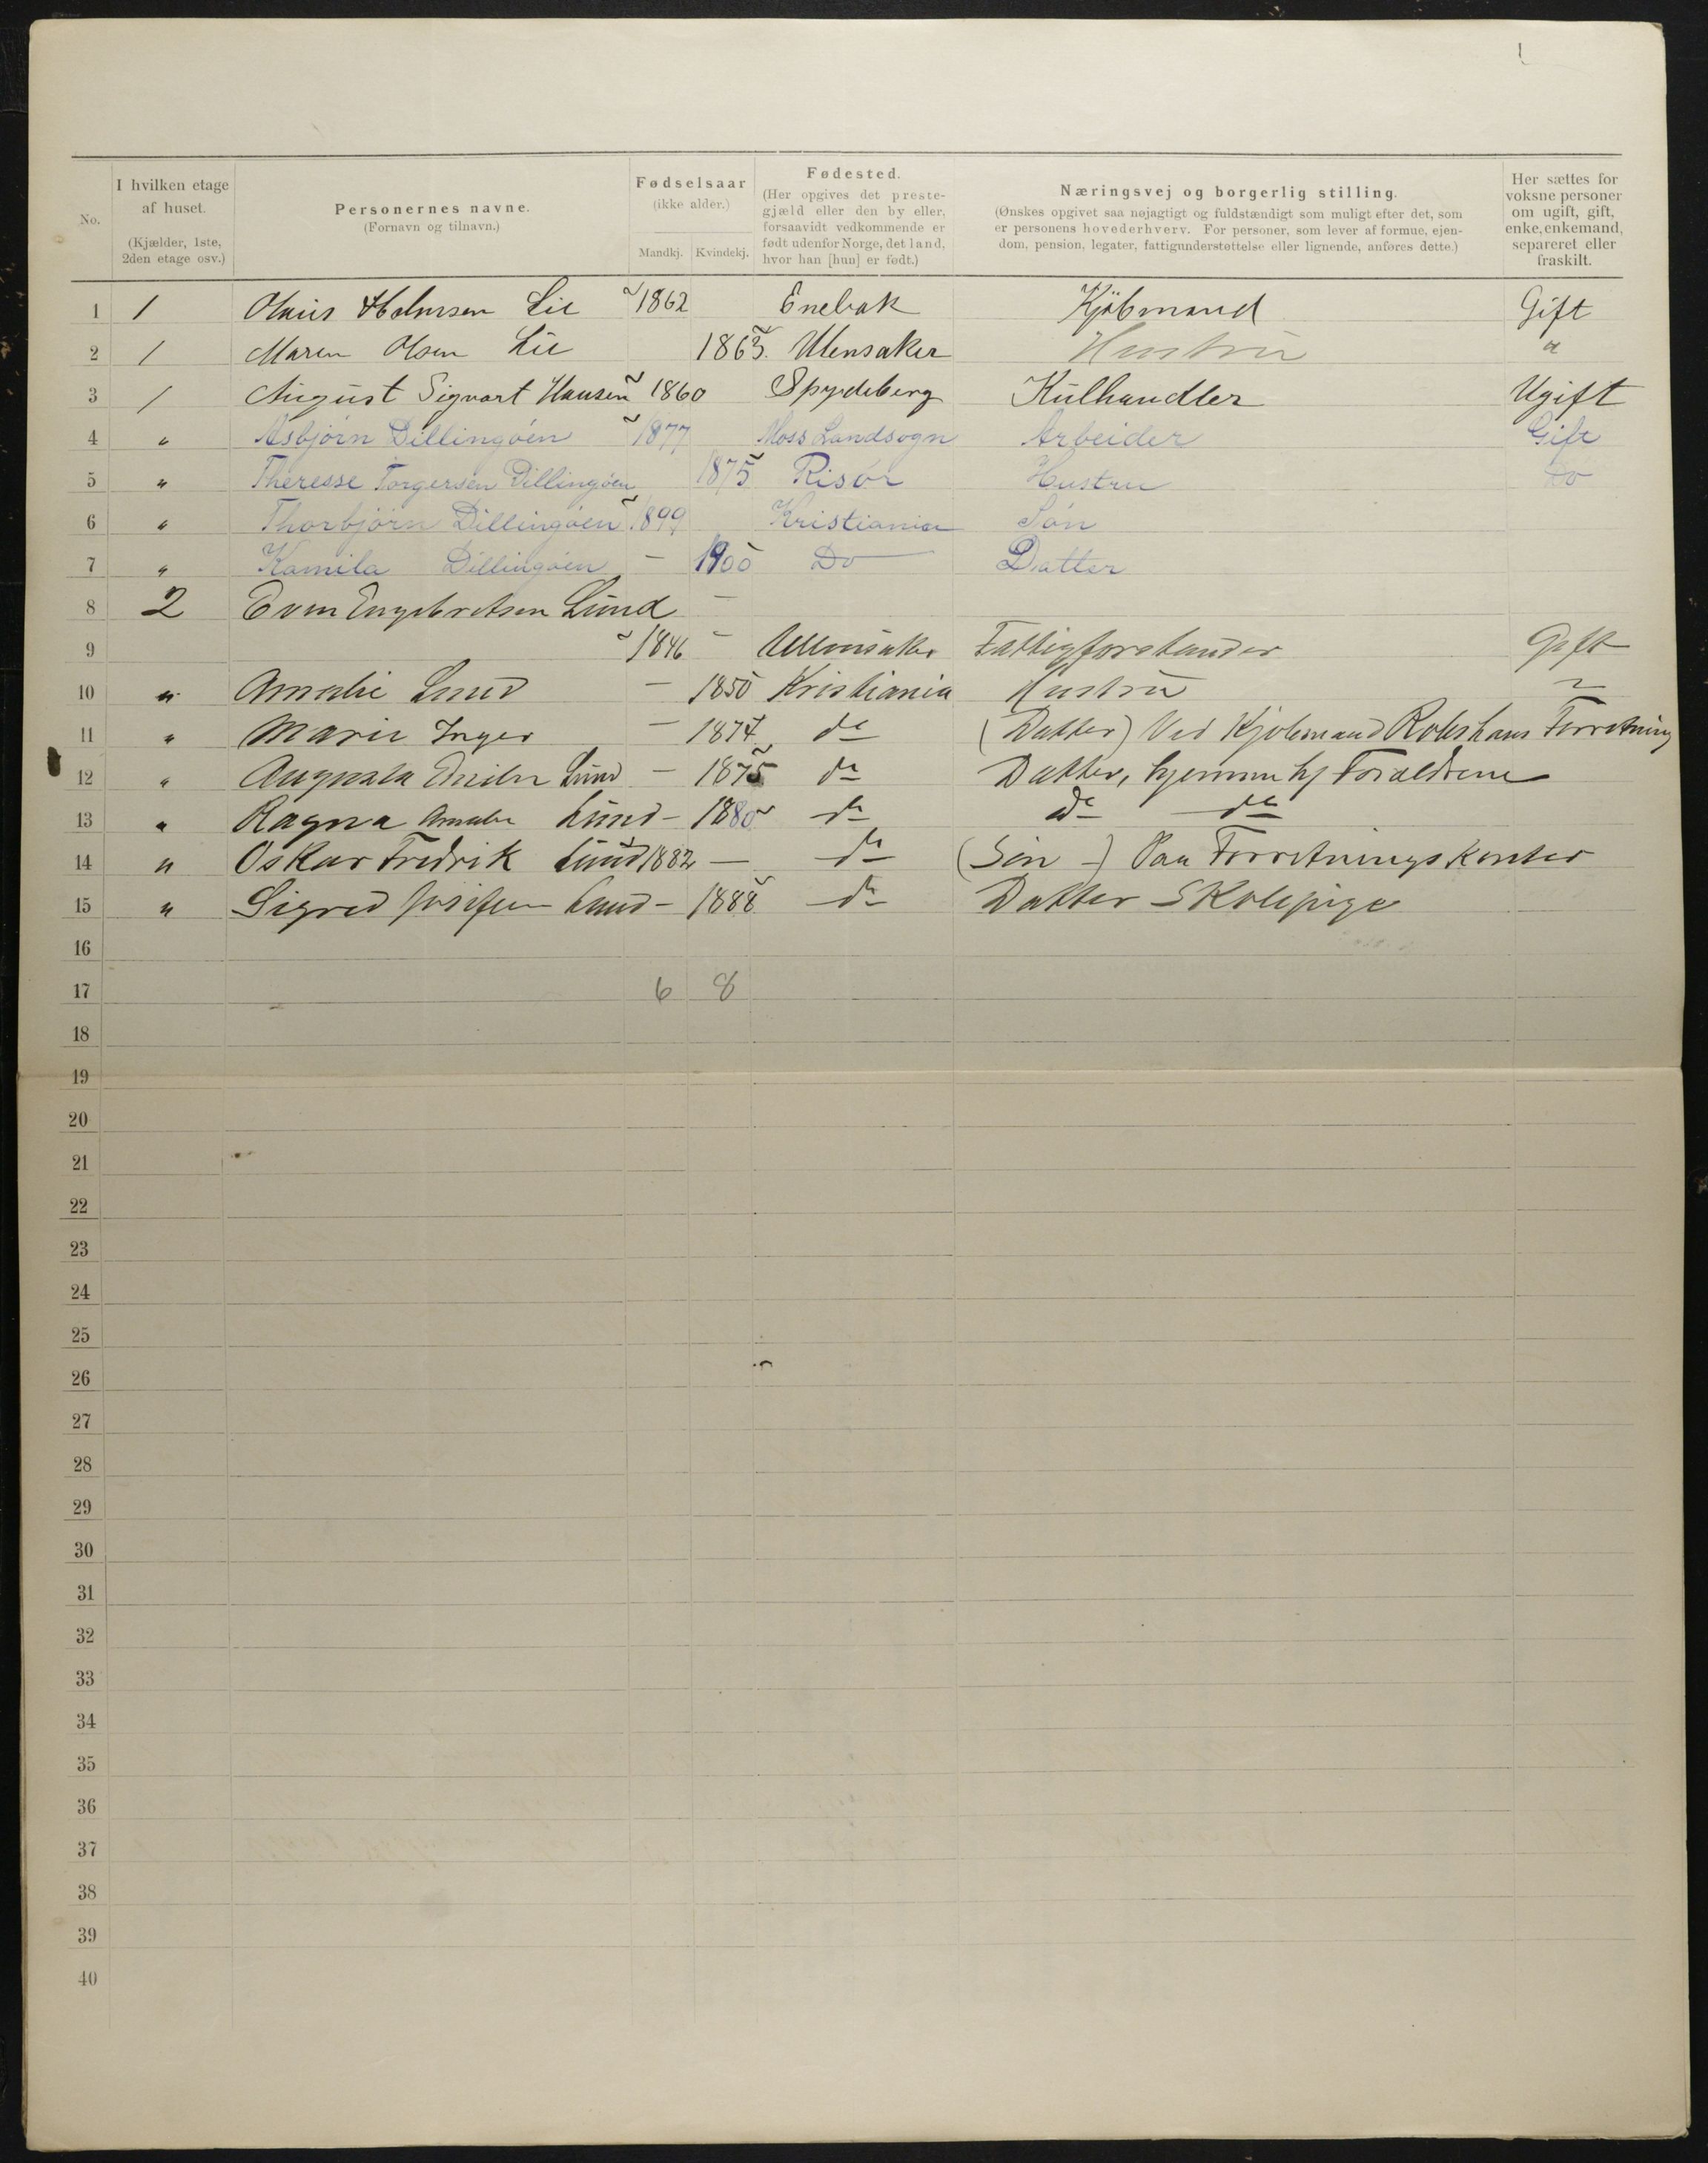 No.
I hvilken etage af huset. (Kjælder, 1ste, 2den etage osv.)
Personernes navne. (Fornavn og tilnavn.)
Fødselsaar (ikke alder.) Mandkj. Kvindekj.
Fødested. (Her opgives det prestegjæld eller den by eller, forsaavidt vedkommende er født udenfor Norge, det land, hvor han [hun] er født.)
Næringsvej og borgerlig stilling. (Ønskes opgivet saa nøjagtigt og fuldstændigt som muligt efter det, som er personens hovederhverv. For personer, som lever af formue, ejendom, pension, legater, fattigunderstøttelse eller lignende, anføres dette.)
Her sættes for voksne personer om ugift, gift, enke, enkemand, separeret eller fraskilt.
1 1 Olaus Lie 1862 Enebak Kjøbmand Gift
2 1 Maren Olsen Lie 1863. Ulensaker Hustru "
3 1 August Sigvart Hansen 1860 Spydeberg Kulhandler Ugift
4 " Asbjørn Dillingøen 1877 Moss Landsogn Arbeider Gift
5 " Theresse Torgersen Dillingøen 1875 Risør Hustru Do
6 " Thorbjørn Dillingøen 1899 Kristiania Søn
7 " Kamila Dillingøen – 1900 Do Datter
8 2 Even Engebretsen Lund –
9 1846 – Ullensaker Fattigforstander Gift
10 " Amalie Lund – 1850 Kristiania Hustru "
11 " Marie Inger – 1874 do (Datter) Ved Kjøbmand Forretning
12 " Augusta Emilie Lund – 1875 do Datter, hjemme hj Forældrene
13 " Ragna Amalie Lund – 1880 do do do
14 " Oskar Fredrik Lund 1882 – do (Søn –) Paa Forretningskontor
15 " Sigrid Josefine Lund – 1888 do Datter Skolepige
16
17 6 8
18
19
20
21
22
23
24
25
26
27
28
29
30
31
32
33
34
35
36
37
38
39
40